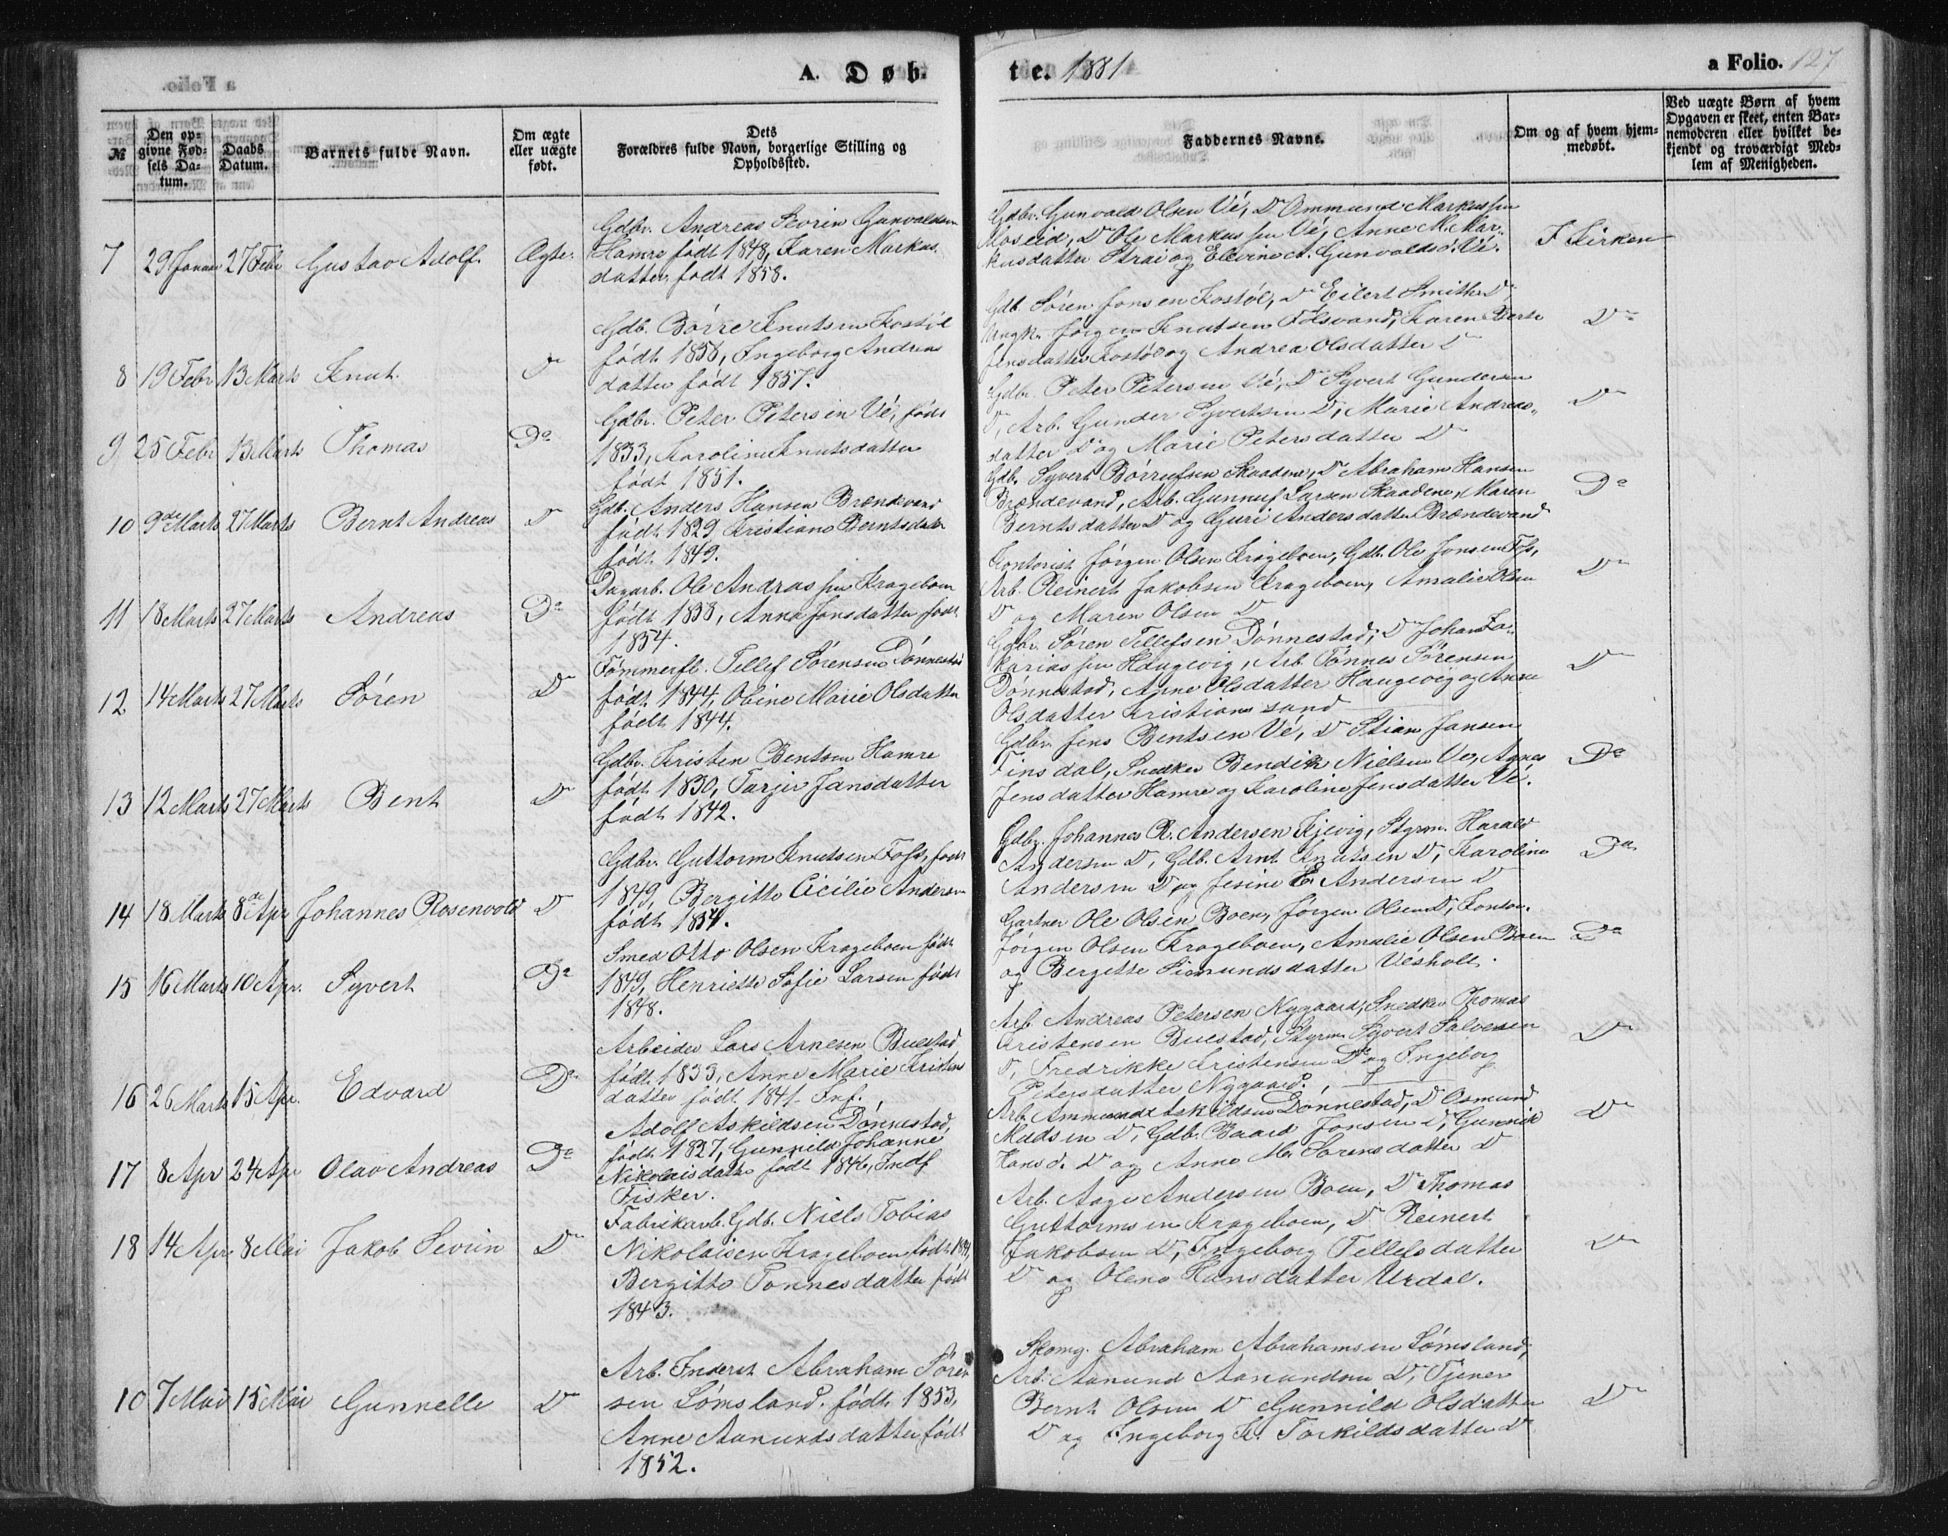 A. Døb.
te. 1881
a Folio. 127
№
Den op-
givne Fød-
sels Da-
tum.
Daabs
Datum.
Barnets fulde Navn.
Om ægte
eller uægte
født.
Dets
Forældres fulde Navn, borgerlige Stilling og
Opholdssted.
Faddernes Navne.
Om og af hvem hjem-
medøbt.
Ved uægte Børn af hvem
Opgaven er skeet, enten Bar-
nemoderen eller hvilket be-
kjendt og troværdigt Med-
lem af Menigheden.
7 29 Januar 27 Febr Gustav Adolf. Ægte.
Gdbr. Andreas Severin Gunvaldsen
Hamre født 1848, Karen Markus-
datter født 1858.
Gdbr. Gunvald Olsen Vé, Do Ommund Markussen
Moseid, Do Ole Markussen Vé, Anne M. Mar-
kusdatter Strai og Elevine A. Gunvaldsd. Vé.
I Kirken
8 19 Febr 13 Marts Knut Do
Gdb. Børre Knutsen Kostøl
født 1856, Ingeborg Andreas
datter født 1857.
Gdb. Søren Jensen Kostøl, Do Eilert Smith Do,
Ungk. Jørgen Knutsen Tolsvand, Karen Berte
Jensdatter Kostøl og Andrea Olsdatter Do
Do
9 25 Febr 13 Marts Thomas Do
Gdbr. Peter Petersen Vé, født
1833, Karoline Knutsdatter
født 1851.
Gdbr. Peter Petersen Vé, Do Syvert Gundersen
Do, Arb. Gunder Syvertsen Do, Marie Andreas-
datter Do og Marie Petersdatter Do
Do
10 9de Marts 27 Marts Bernt Andreas Do
Gdb. Anders Hansen Brændevand
født 1829, Kristiane Berntsdatter
født 1849.
Gdb. Syvert Børrufsen Skaadene, Do Abraham Hansen
Brændevand, Arb. Gunnuf Larsen Skaadene, Maren
Berntsdatter Do og Guri Andersdatter Brændevand
Do
11 18 Marts 27 Marts Andreas Do
Dagarb. Ole Andreassen Krageboen
født 1838, Anne Jonsdatter født
1854.
Kontorist Jørgen Olsen Krageboen, Gdb. Ole Jonsen Foss,
Arb. Reinert Jakobsen Krageboen, Amalie Olsen
Do og Maren Olsen Do
Do
12 14 Marts 27 Marts Søren Do
Tømmerfl. Tellef Sørensen Dønnestad
født 1844, Oline Marie Olsdatter
født 1844.
Gdbr. Søren Tellefsen Dønnestad, Do Johan Za-
kariassen Haugevig, Arb. Tønnes Sørensen
Dønnestad, Anne Olsdatter Haugevig og Anne
Olsdatter Kristiansand
Do
13 12 Marts 27 Marts Bent Do
Gdbr. Kristen Bentsen Hamre
født 1830, Tarjer Jansdatter
født 1842.
Gdbr. Jens Bentsen Vé, Do Stian Jansen
Tinsdal, Snedker Bendik Nielsen Ve, Agnes
Jensdatter Hamre og Karoline Jensdatter Vé.
Do
14 18 Marts 8de Apr Johannes Rosenvold Do
Gdbr. Guttorm Knutsen Foss, født
1849, Bergitte Cicilie Andersen
født 1854.
Gdbr. Johannes R. Andersen Kjevig, Styrm. Harald
Andersen Do, Gdb. Arnt Knutsen Do, Karoline
Andersen Do og Jesine E. Andersen Do
Do
15 16 Marts 10 Apr. Syvert Do
Smed Otto Olsen Krageboen født
1849, Henriette Sofie Larsen født
1848.
Gartner Ole Olsen Boen, Jørgen Olsen Do, Kontor.
Jørgen Olsen Krageboen, Amalie Olsen Boen
og Bergitte Simundsdatter Vésholt.
Do
16 26 Marts 15 Apr. Edvard Do
Arbeider Lars Arnesen Buestad
født 1833, Anne Marie Kristens
datter født 1841. Inf.
Arb. Andreas Petersen Nygaard, Snedker Thomas
Kristensen Buestad, Styrm. Syvert Salvesen
Do, Fredrikke Kristensen Do og Ingeborg
Petersdatter Nygaard.
Do
17 8 Apr 24 Apr Olav Andreas Do
Adolf Askildsen Dønnestad,
født 1827, Gunnild Johanne
Nikolaisdatter født 1846, Indf
Fisker.
Arb. Ammund Askildsen Dønnestad, Do Osmund
Madsen Do, Gdb. Baard Jonsen Do, Gunnik
Hansd. Do og Anne M. Sørensdatter Do
Do
18 14 Apr 8 Mai Jakob Severin Do
Fabrikarb. Gdb. Niels Tobias
Nikolaisen Krageboen født 1841,
Bergitte Tønnesdatter født
1843.
Arb. Aage Andersen Boen, Do Thomas
Guttormsen Krageboen, Do Reinert
Jakobsen Do, Ingeborg Tellefsdatter
Do og Olene Hansdatter Urdal.
Do
10 7 Mai 15 Mai Gunnelle Do
Arb. Inderst Abraham Søren
sen Lømsland født 1853,
Anne Aanundsdatter født
1852.
Skomg. Abraham Abrahamsen Lømsland,
Arb. Aanund Aanundsen Do, Tjener
Bernt Olsen Do Gunnild Olsdatter
Do og Ingeborg K. Torkildsdatter Do
Do